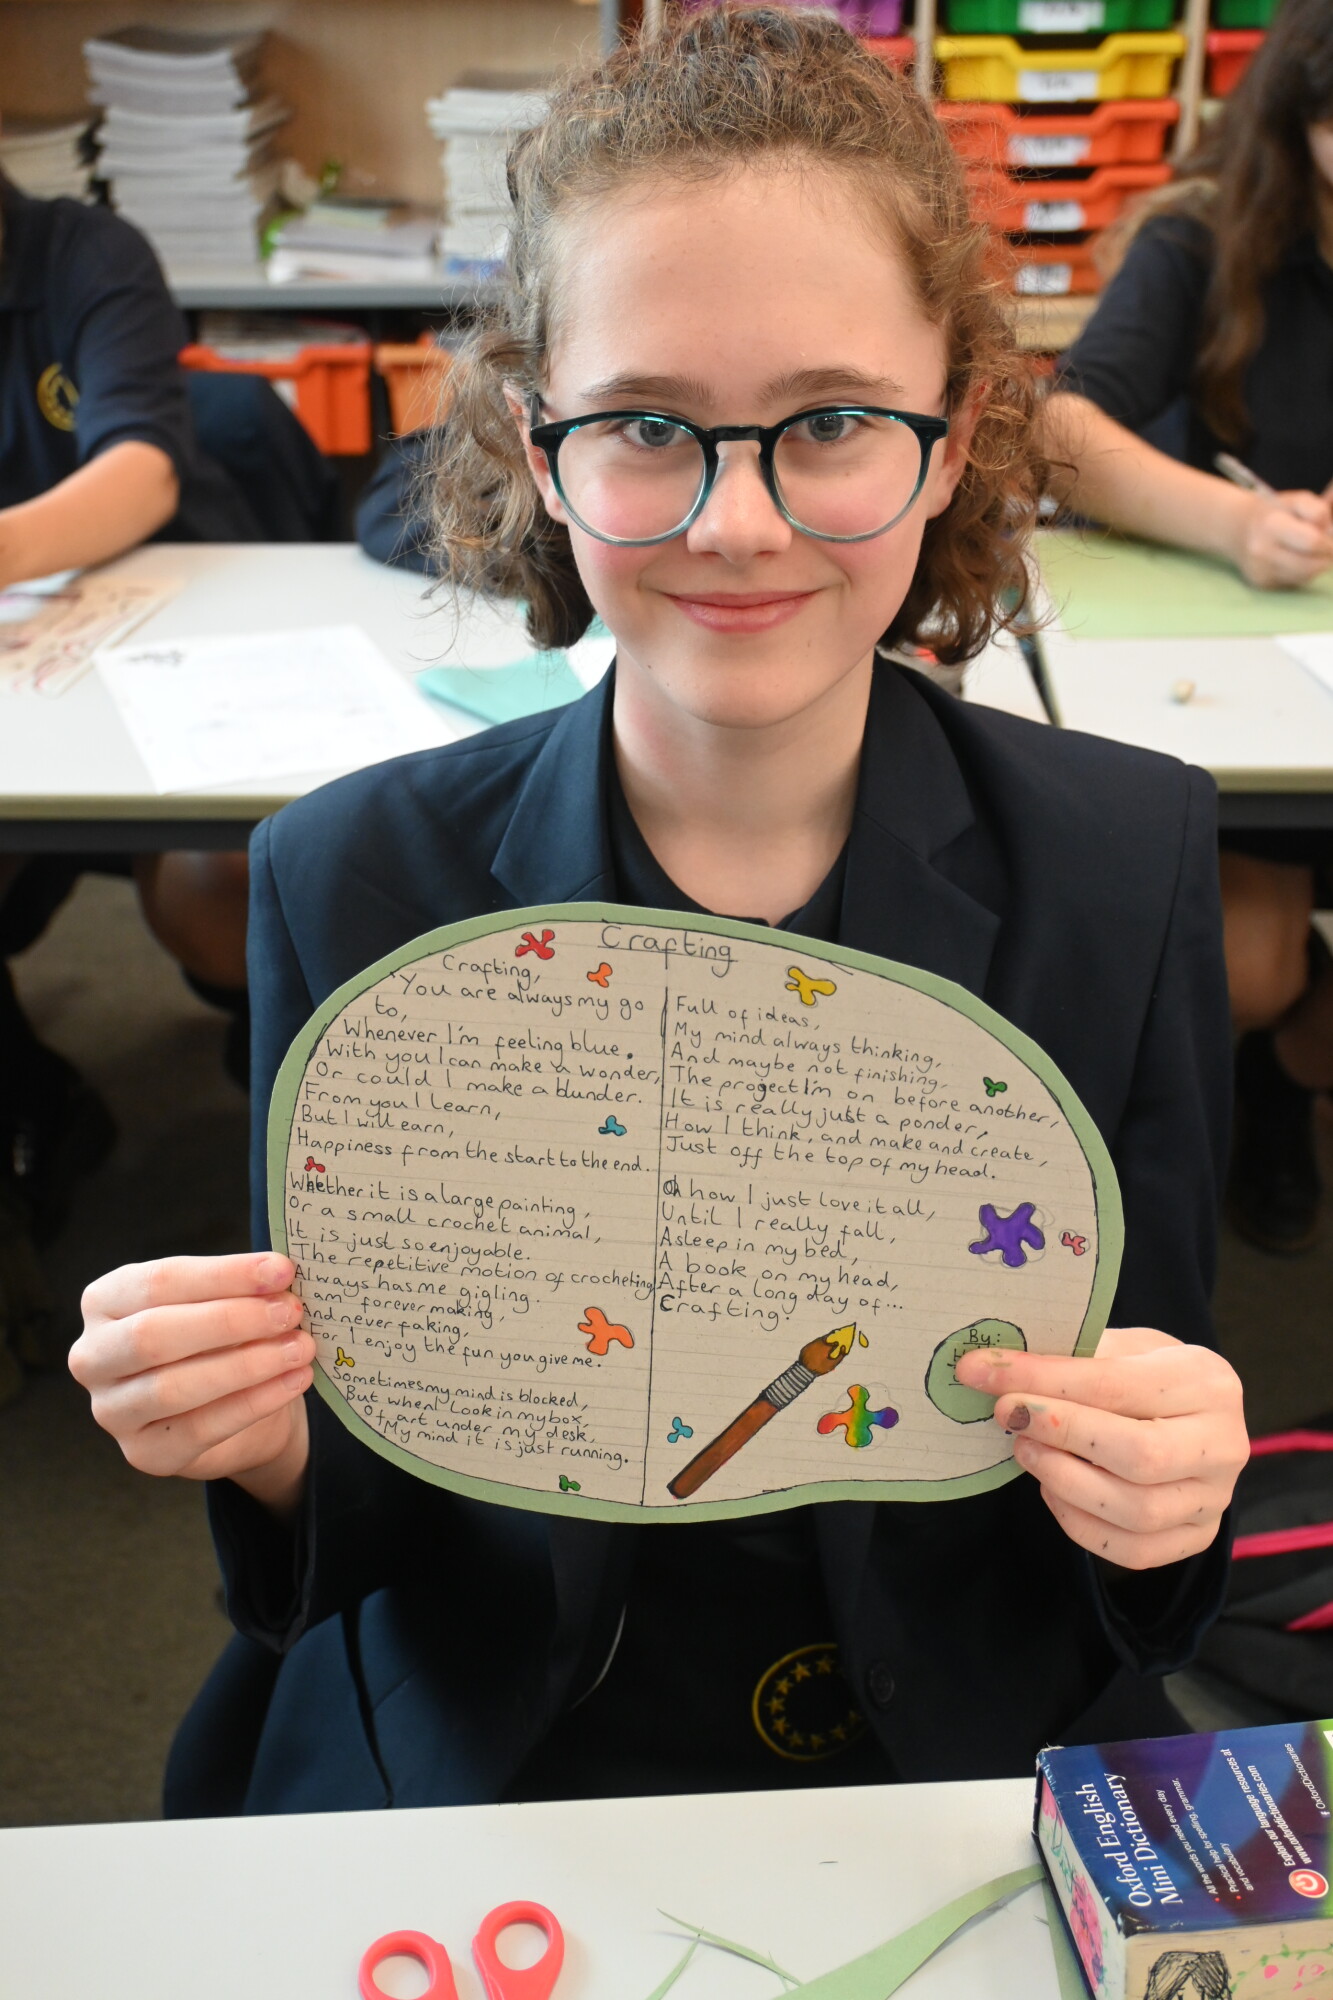 Crafting
Crafting,
You are always my go
to,
Whenever I'm feeling blue.
With you I can make a wonder,
Or could I make a blunder.
From you I learn,
But I will earn,
Happiness from the start to the end.
Whether it is a large painting,
Or a small crochet animal,
It is just so enjoyable.
The repetitive motion of crocheting
Always has me gigling.
I am forever making,
And never faking,
For I enjoy the fun you give me.
Sometimes my mind is blocked,
But when I look in my box,
Of art under my desk,
My mind it is just running.
Full of ideas,
My mind always thinking,
And maybe not finishing,
The project I'm on before another,
It is really just a ponder,
How I think, and make and create,
Just off the top of my head.
Oh how I just love it all,
Until I really fall,
Asleep in my bed,
A book on my head,
After a long day of...
Crafting.
By:
Oxford English
Mini Dictionary
• All the words you need every day
• Practical help for spelling, grammar,
and vocabulary
Explore our language resources at
www.oxforddictionaries.com
f OxfordDictionaries